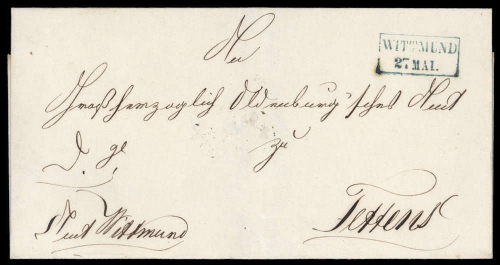 WITTMUND
27 MAI.
An
Großherzoglich Oldenburg'sches Amt
zu
Amt Wittmund
Tettens